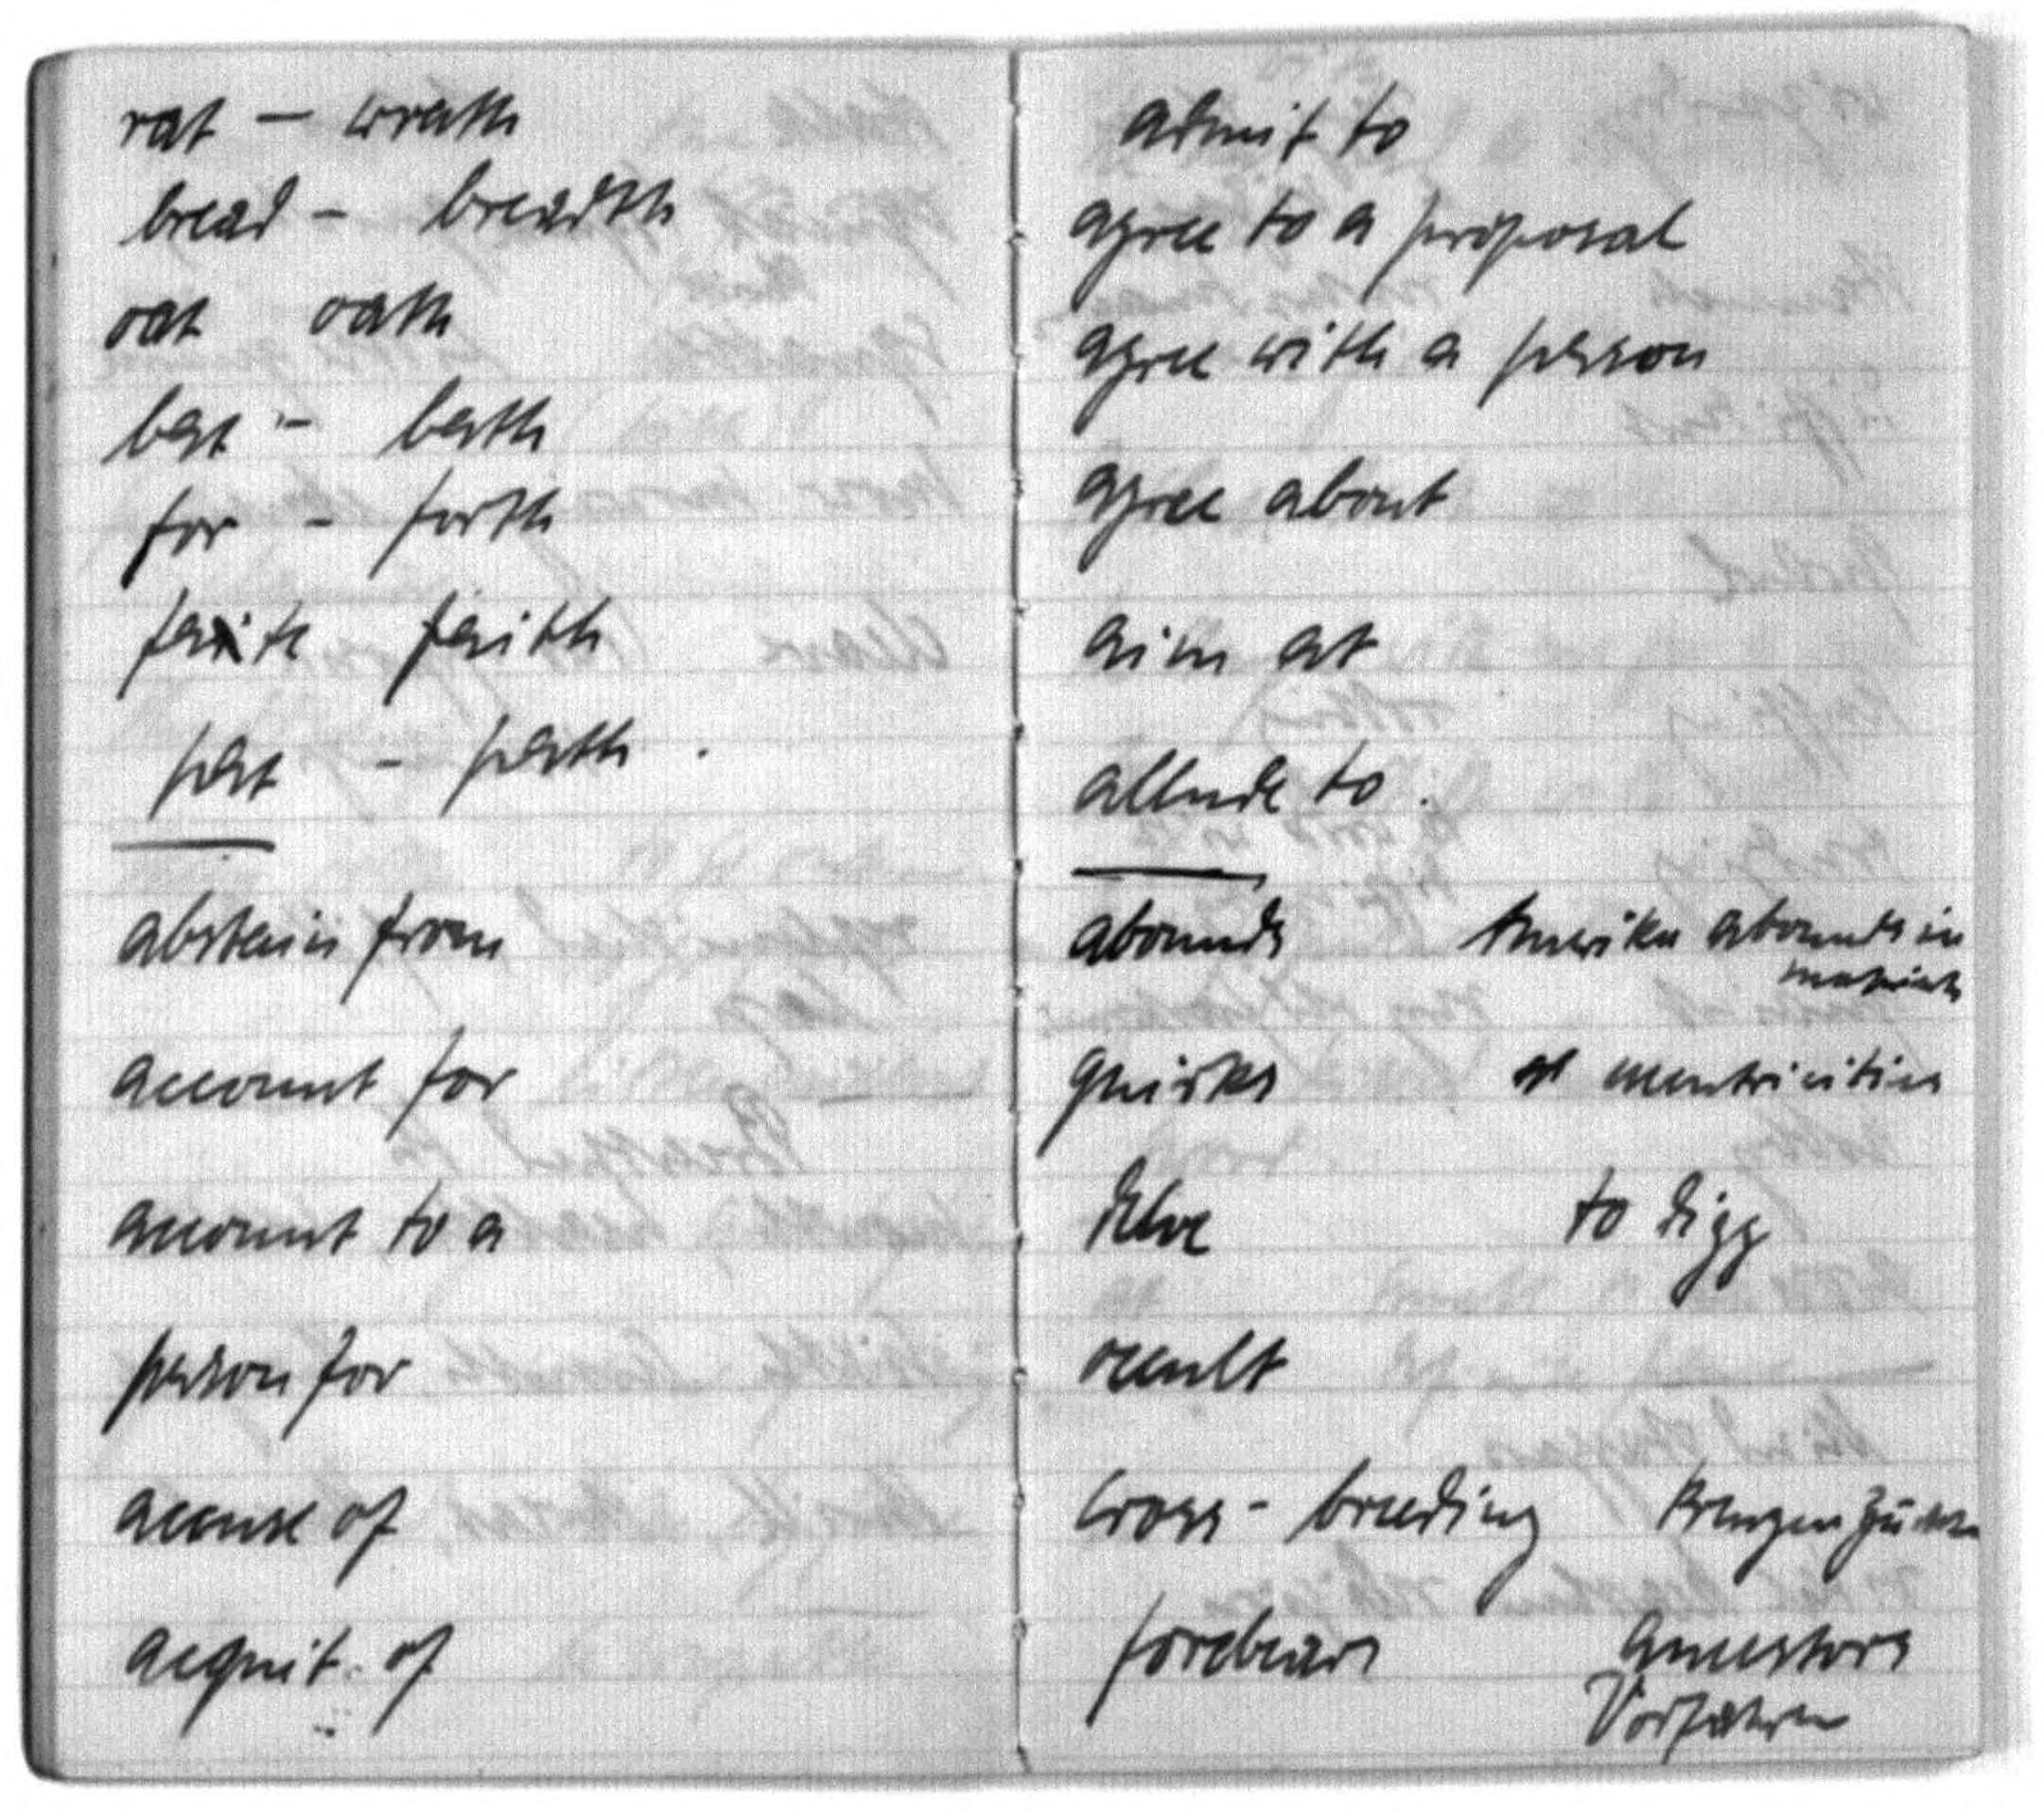 rat – wrath
bread – breadth
oat oath
bat – bath
for – forth
faite faith
pat – path .
abstain from
account for
account to a
person for
accuse of
acquit of
admit to
agree to a proposal
agree with a person
agree about
aim at
allude to .
abounds Amerika abounds in
quirks excentricities
delve to digg
occult
cross-breeding
forebears Ancestors
Vorfahren